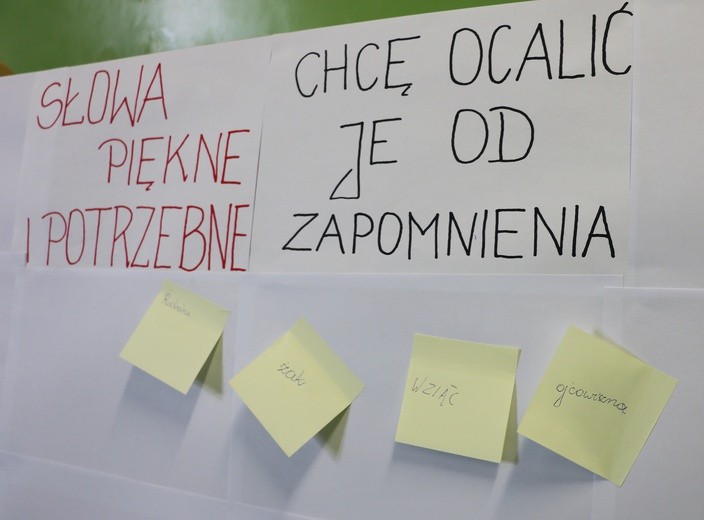 SŁOWA
PIĘKNE
I POTRZEBNE
CHCĘ OCALIĆ
JE OD
ZAPOMNIENIA
żaki
WZIĄĆ
ojcowizna